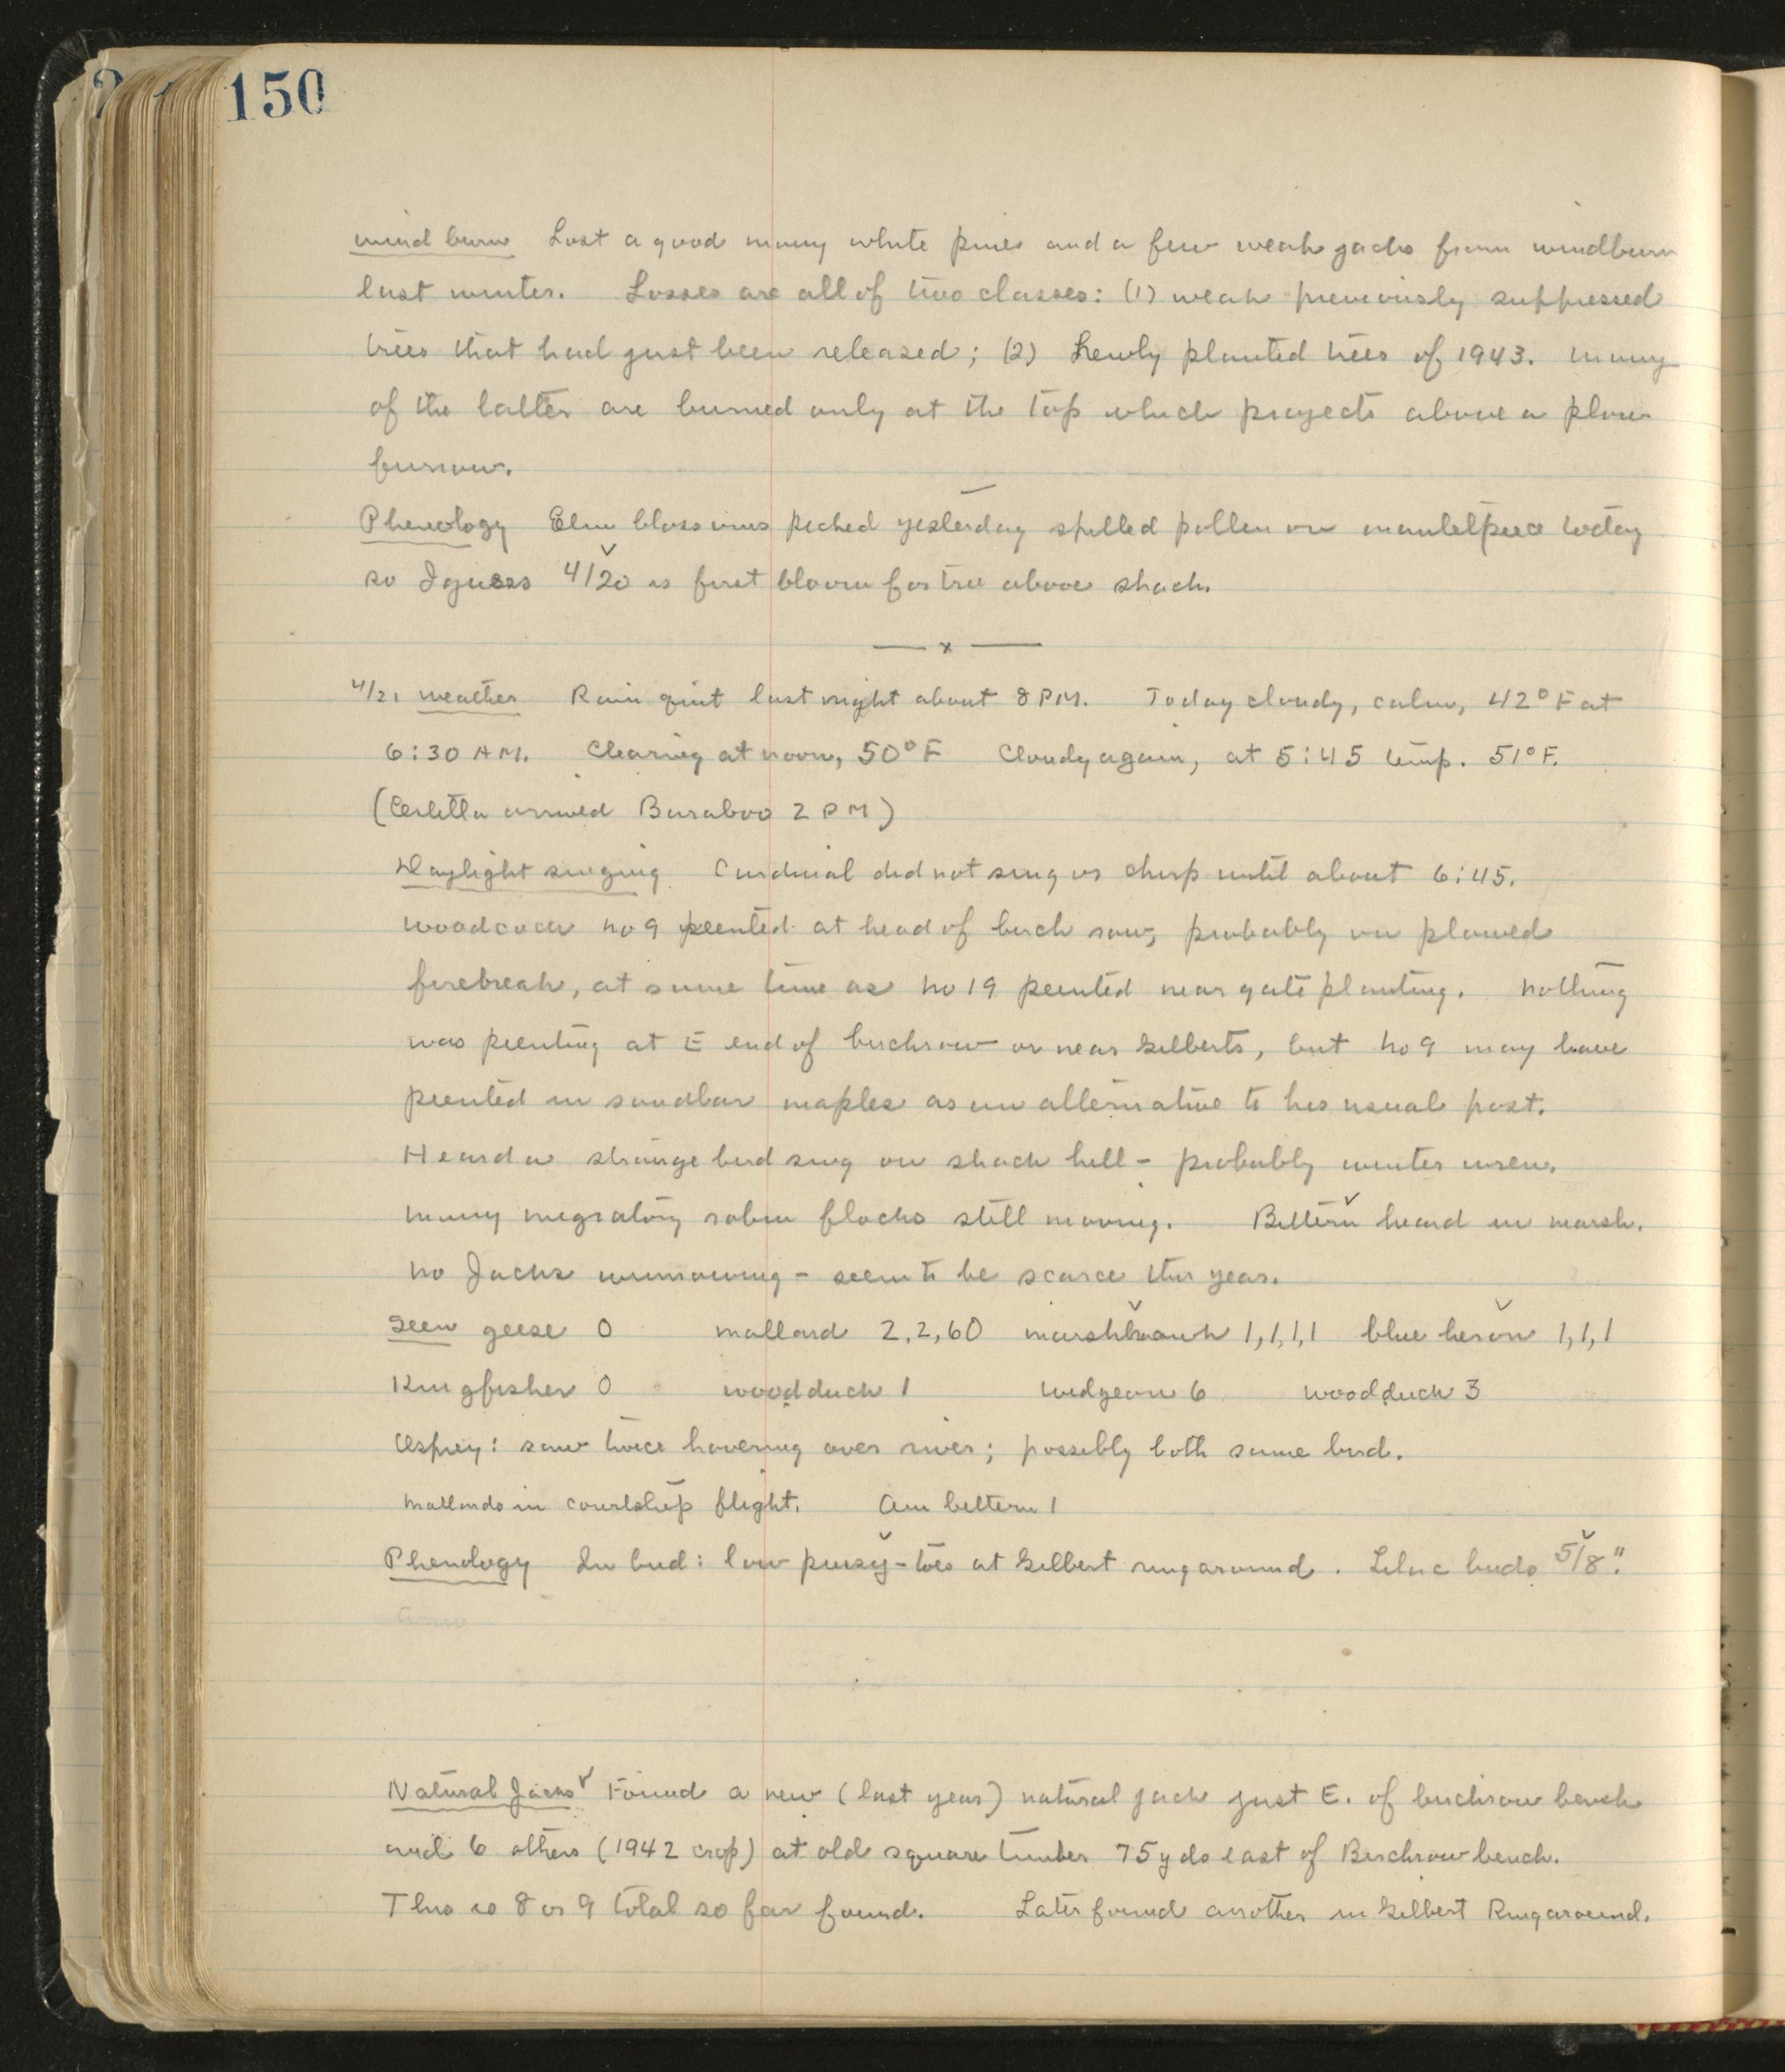 150
wind burn Lost a good many white pines and a few weak jacks from windburn
last winter. Losses are all of two classes: (1) weak previously suppressed
trees that had just been released; (2) Newly planted trees of 1943. Many
of the latter are burned only at the top which projects above a plow
furrow.
Phenology Elm blossoms picked yesterday spilled pollen on mantelpiece today
so I guess 4/20 is first bloom for tree above shack.
— x —
4/21 Weather Rain quit last night about 8 PM. Today cloudy, calm, 42° F at
6:30 AM. Clearing at noon, 50° F Cloudy again, at 5:45 temp. 51° F.
(Carletta arrived Baraboo 2 PM)
Daylight singing Cardinal did not sing or chirp until about 6:45.
Woodcock No 9 peented at head of birch row, probably on plowed
firebreak, at same time as No 19 peented near gate planting. Nothing
was peenting at E end of birchrow or near Gilberts, but No 9 may have
peented in sandbar maples as an alternative to his usual post.
Heard a strange bird sing on shack hill - probably winter wren.
Many migratory robin flocks still moving. Bittern heard in marsh.
No Jacks winnowing - seem to be scarce this year.
Seen geese 0 mallard 2,2,60 marshhawk 1,1,1,1 blue heron 1,1,1
Kingfisher 0 woodduck 1 widgeon 6 woodduck 3
Osprey: saw twice hovering over river; possibly both same bird.
Mallards in courtship flight. Am bittern 1
Phenology In bud: low pussy-toes at Gilbert ringaround. Lilac buds 5/8".
Natural Jacks Found a new (last year) natural jack just E. of birchrow bench
and 6 others (1942 crop) at old square timber 75 yds east of Birchrow bench.
This is 8 or 9 total so far found. Later found another in Gilbert Ringaround.